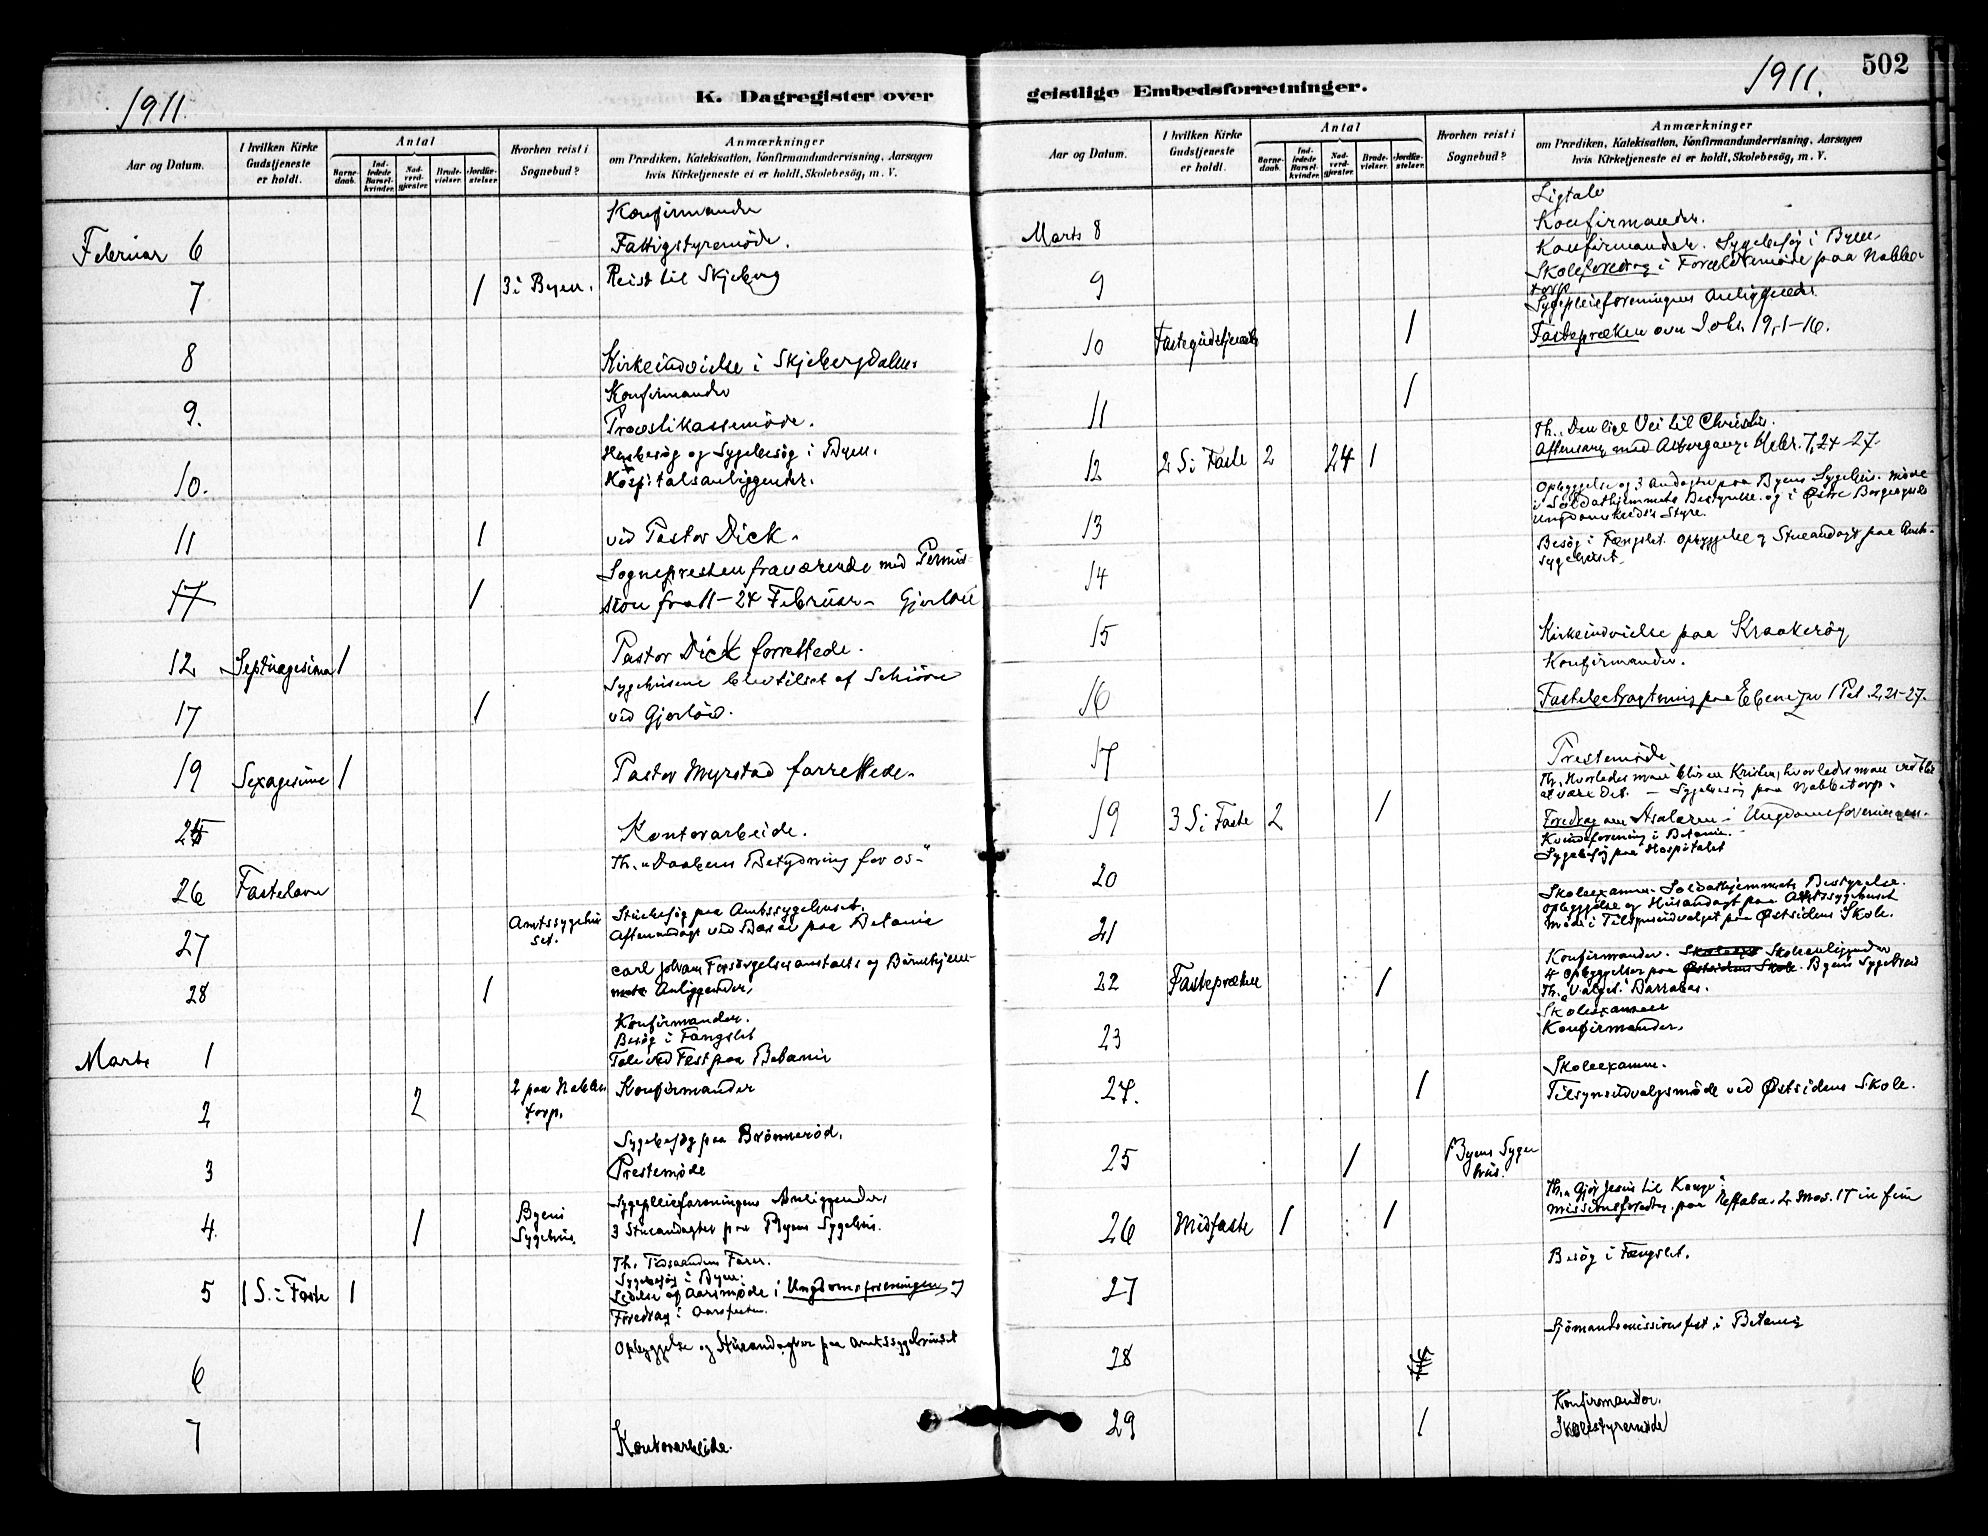 1911.
K. Dagregister over
Aar og Datum.
I hvilken Kirke Gudstjeneste er holdt.
Antal
Barne-daab.
Ind-ledede Barsel-kvinder.
Nad-verd-gjæster.
Brude-vielser.
Jordfæ-stelser.
Hvorhen reist i Sognebud?
Anmærkninger
om Prædiken, Katekisation, Konfirmandundervisning, Aarsagen
hvis Kirketjeneste ei er holdt, Skolebesøg, m. V.
Konfirmander
Februar 6 Fattigstyremøde.
7 1 3 i Byen. Reist til Skjeberg
8 Kirkeindvielse i Skjebergdalen
Konfirmander
9. Præstikassemøde.
Husbesøg og Sygebesøg i Byen.
10. Hospitalsanliggender.
11 1 ved Pastor Dick.
Sognepresten fraværende med Permis-
17 1 sion fra 11-24 Februar - Gjerløw
12 Septuagesima 1 Pastor Dick forrettede.
Sygehusene blev tilset af Schiøre
17 1 ved Gjerløw.
19 Sexagesima 1 Pastor Myrstad forrettede.
25 Kontorarbeide.
Th. "Daabens Betydning for os"
26 Fastelavn
Amtssygehu- Stuebesøg paa Amtssygehuset.
27 set. Aftenandagt ved Basar paa Betania
Carl Johans Forsørgelsesanstalts og Børnehjem-
28 1 mets Anliggender,
Konfirmander.
Besøg i Fængslet
Marts 1 Tale ved Fest paa Betania
2 2 2 paa Nabbe- Konfirmander
torp.
Sygebesøg paa Brønnerød.
3 Prestemøde
Sygepleieforeningens Anliggender,
4. 1 Byens Sygehus 3 Stueandagter paa Byens Sygehus.
Th. Tidsaandens Farer.
Sygebesøg i Byen.
5 1 S. i Faste 1 Ledelse af Aarsmøde i Ungdomsforeningen og
Foredrag i Aarsfesten.
Opbyggelse og Stueandagter paa Amtssygehuset
6
7 Kontorarbeide.
1911.
502
geistlige Embedsforretninger.
Aar og Datum.
I hvilken Kirke Gudstjeneste er holdt.
Antal
Barne-daab.
Ind-ledede Barsel-kvinder.
Nad-verd-gjæster.
Brude-vielser.
Jordfæ-stelser.
Hvorhen reist i Sognebud?
Anmærkninger
om Prædiken, Katekisation, Konfirmandundervisning, Aarsagen
hvis Kirketjeneste ei er holdt, Skolebesøg, m. V.
Ligtale
Marts 8 Konfirmander.
Konfirmander. Sygebesøg i Byen
9 Skoleforedrag i Forældremøde paa Nabbe-
torp
Sygepleieforeningens Anliggender
10 Fastegudstjeneste 1 Fastepræken over Joh. 19,1-16.
11 1
Th. "Den lige Vei til Christus.
12 2 S. i Faste 2 24 1 Aftensang med Altergang. Hebr. 7,24-27.
Opbyggelse og 3 Andagter paa Byens Sygehus. Møde
i Soldathjemmets Bestyrelse og i Østre Borgesyssels
13 Ungdomskreds's Styre.
Besøg i Fængslet. Opbyggelse og Stueandagt paa Amts-
sygehuset.
14
15 Kirkeindvielse paa Kraakerøy
Konfirmander.
16 Fastebetragtning paa Ebenezer 1 Pet. 2,21-27.
17 Prestemøde.
Th. Hvorledes man blir en Kristen, hvorledes man vedbli
at være det. - Sygebesøg paa Nabbetorp.
19 3 S. i Faste 2 1 Foredrag om Asalaren i Ungdomsforeningen.
Kvindeforening i Betania.
Sygebesøg paa Hospitalet
20
Skoleexamen. Soldathjemmets Bestyrelse.
Opbyggelse og Husandagt paa Amtssygehuset
21 Møde i Tilsynsudvalget paa Østsidens Skole.
Konfirmander. Skoleanliggender
4 Opbyggelser paa Østsidens Skole. Byens Sygehus
22 Fastepræken 1 Th. "Valget." Barrabas.
Skoleexamen
23 Konfirmander.
Skoleexamen.
24. 1 Tilsynsudvalgsmøde ved Østsidens Skole.
25 1 Byens Syge-
hus.
Th. "Gjør Jesus til Konge"
26 Midfaste 1 1 Missionsforedrag paa Reffaba. 2 Mos. 17 in fine
Besøg i Fængslet.
27
Sjømandsmissionsfest i Betania
28
Konfirmander.
29 1 Skolestyremøde